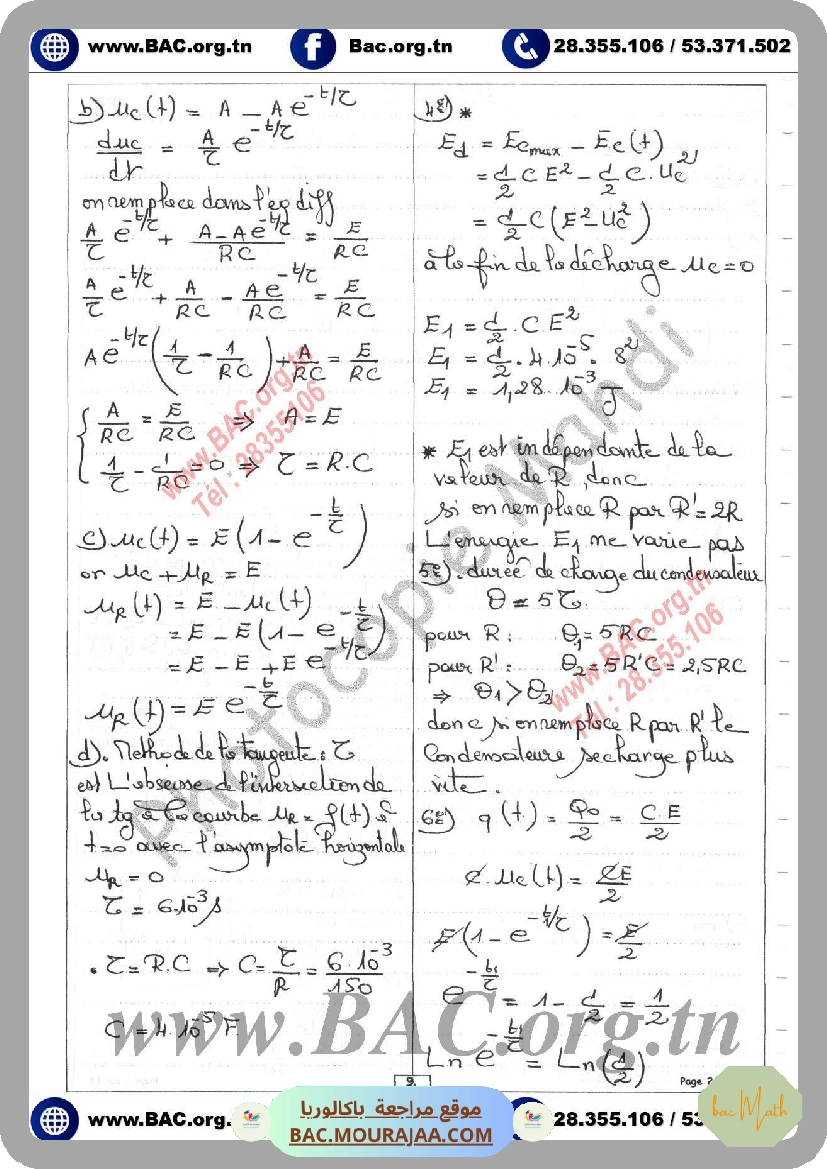 www.BAC.org.tn
Bac.org.tn
28.355.106 / 53.371.502
b) uc(t) = A - A e^-t/τ
duc/dt = A/τ e^-t/τ
on remplace dans l'eq diff
A/τ e^-t/τ + (A - A e^-t/τ)/RC = E/RC
A/τ e^-t/τ + A/RC - A e^-t/τ/RC = E/RC
A e^-t/τ (1/τ - 1/RC) + A/RC = E/RC
{ A/RC = E/RC => A = E
1/τ - 1/RC = 0 => τ = R.C
c) uc(t) = E(1 - e^-t/τ)
or uc + uR = E
uR(t) = E - uc(t)
= E - E(1 - e^-t/τ)
= E - E + E e^-t/τ
uR(t) = E e^-t/τ
d). Methode de la tangente : τ
est L'absisse de l'intersection de
la tg à la courbe uR = f(t) à
t=0 avec l'asymptote horizontale
uR = 0
τ = 6.10^-3 s
. τ = R.C => C = τ/R = 6.10^-3/150
C = 4.10^-5 F
4°) *
Ed = Ecmax - Ec(t)
= 1/2 C E² - 1/2 C. uc²
= 1/2 C (E² - uc²)
à la fin de la décharge uc = 0
E1 = 1/2 . C E²
E1 = 1/2 . 4.10^-5 . 8²
E1 = 1,28.10^-3 J
* E1 est indépendante de la
valeur de R, donc
si on remplace R par R' = 2R
L'energie E1 ne varie pas
5°). durée de charge du condensateur
θ = 5τ.
pour R : θ1 = 5RC
pour R' : θ2 = 5R'C = 2,5RC
=> θ1 > θ2
donc si on remplace R par R' le
Condensateure se charge plus
vite.
6°) q(t) = Q0/2 = C.E/2
C.uc(t) = CE/2
E(1 - e^-t/τ) = E/2
e^-t1/τ = 1 - 1/2 = 1/2
Ln e^-t1/τ = Ln(1/2)
Photocopie Mahdi
www.BAC.org.tn
Tel : 28355106
www.BAC.org.tn
Tel : 28.355.106
www.BAC.org.tn
9.
Page 2
www.BAC.org.
موقع مراجعة باكالوريا
BAC.MOURAJAA.COM
28.355.106 / 53
bac Math